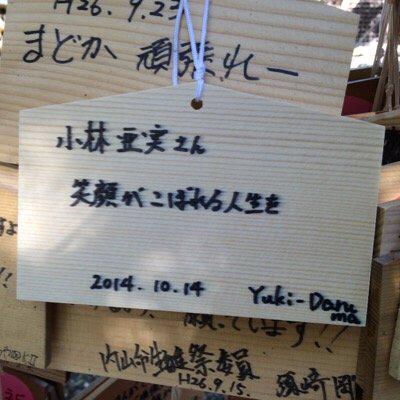 H26.9.23
まどか 頑張れー
小林 亜実さん
笑顔がこぼれる人生を
2014.10.14 Yuki-Daruma
します!!
H26.9.15.